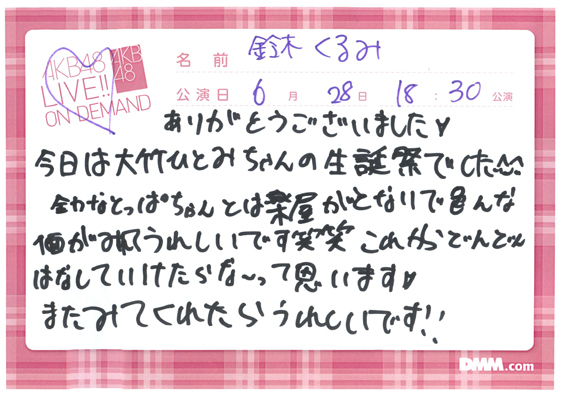 AKB48 LIVE!! ON DEMAND
AKB48
名前 鈴木くるみ
公演日 6月28日 18:30公演
ありがとうございました♡
今日は大竹ひとみちゃんの生誕祭でした
とっぱちゃんとは楽屋がとないで色んな
がみれうれしいです笑笑 これからどんどん
はなしていけたらな〜って思います♡
またみてくれたらうれしいです!!
DMM.com